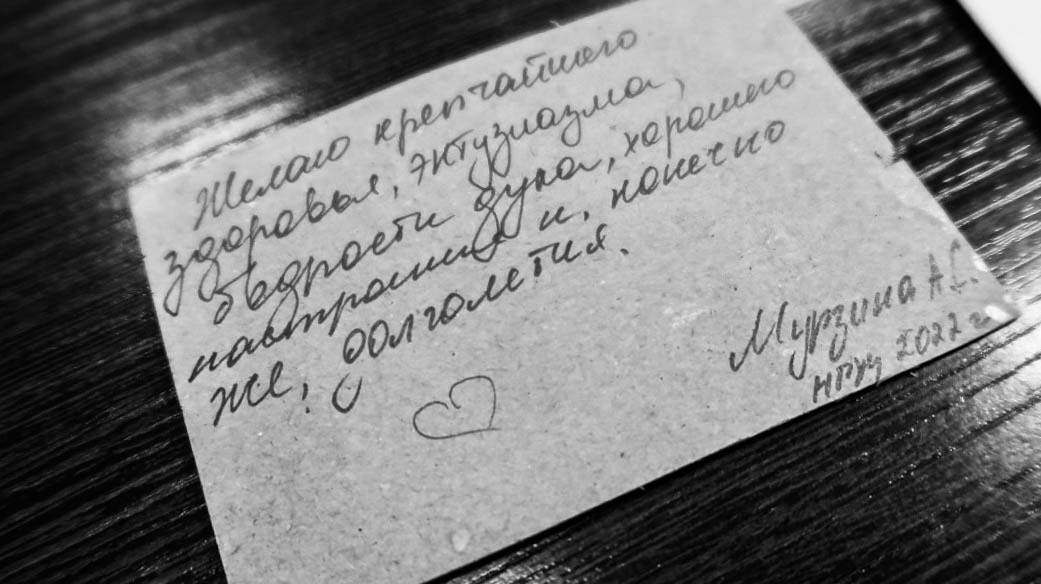 Желаю крепчайшего
здоровья, энтузиазма,
бодрости духа, хорошего
настроения и, конечно
же, долголетия.
Мурзина А.С.
НГУЦ 2022 г.